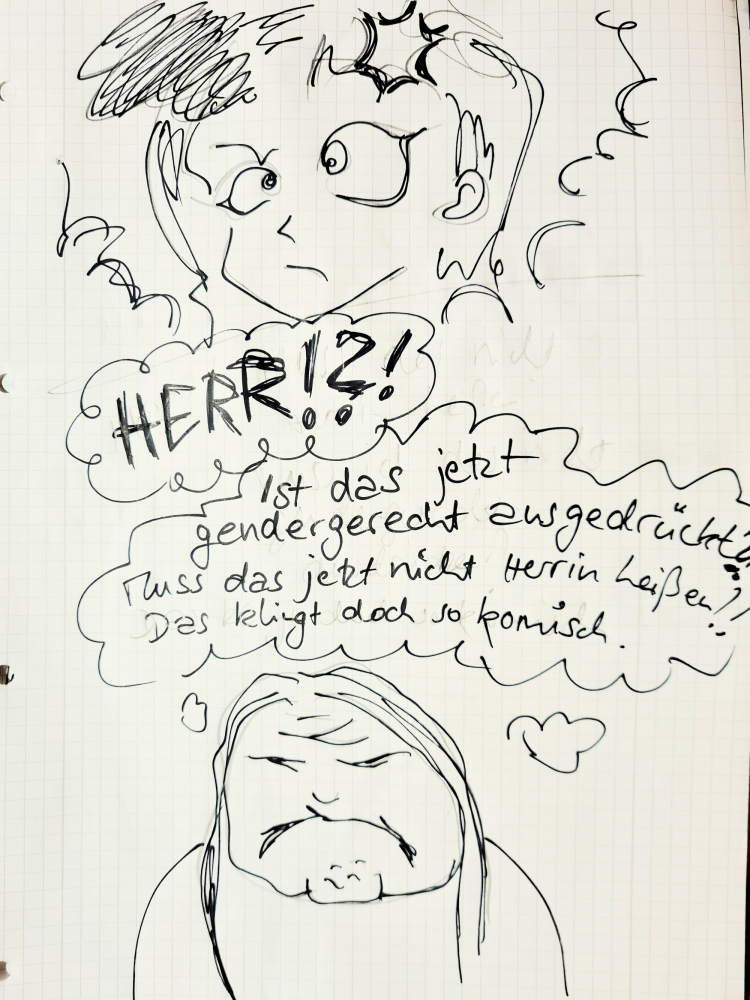 HERR!?!
Ist das jetzt
gendergerecht ausgedrückt?
Muss das jetzt nicht Herrin heißen??
Das klingt doch so komisch.